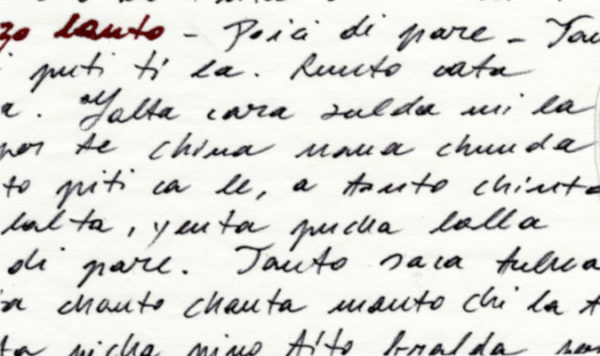 lanto - Poici di pare - Tan
puti ti la. Runto cata
a. Yalta cara zulda mi la
por te china nana chunda
to piti ca le, a tanto chinta
lalta, yenta pucha lalla
di pare. Tanto saca tulna
chanto chanta manto chi la t
ta picha nino tito bralda